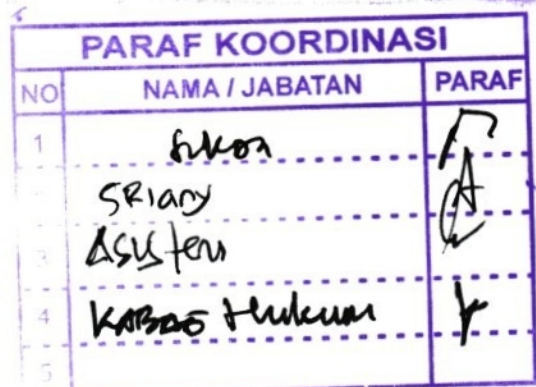 PARAF KOORDINASI
NO NAMA / JABATAN PARAF
1
SRiany
3 Asisten
4 KABAG Hukum
5